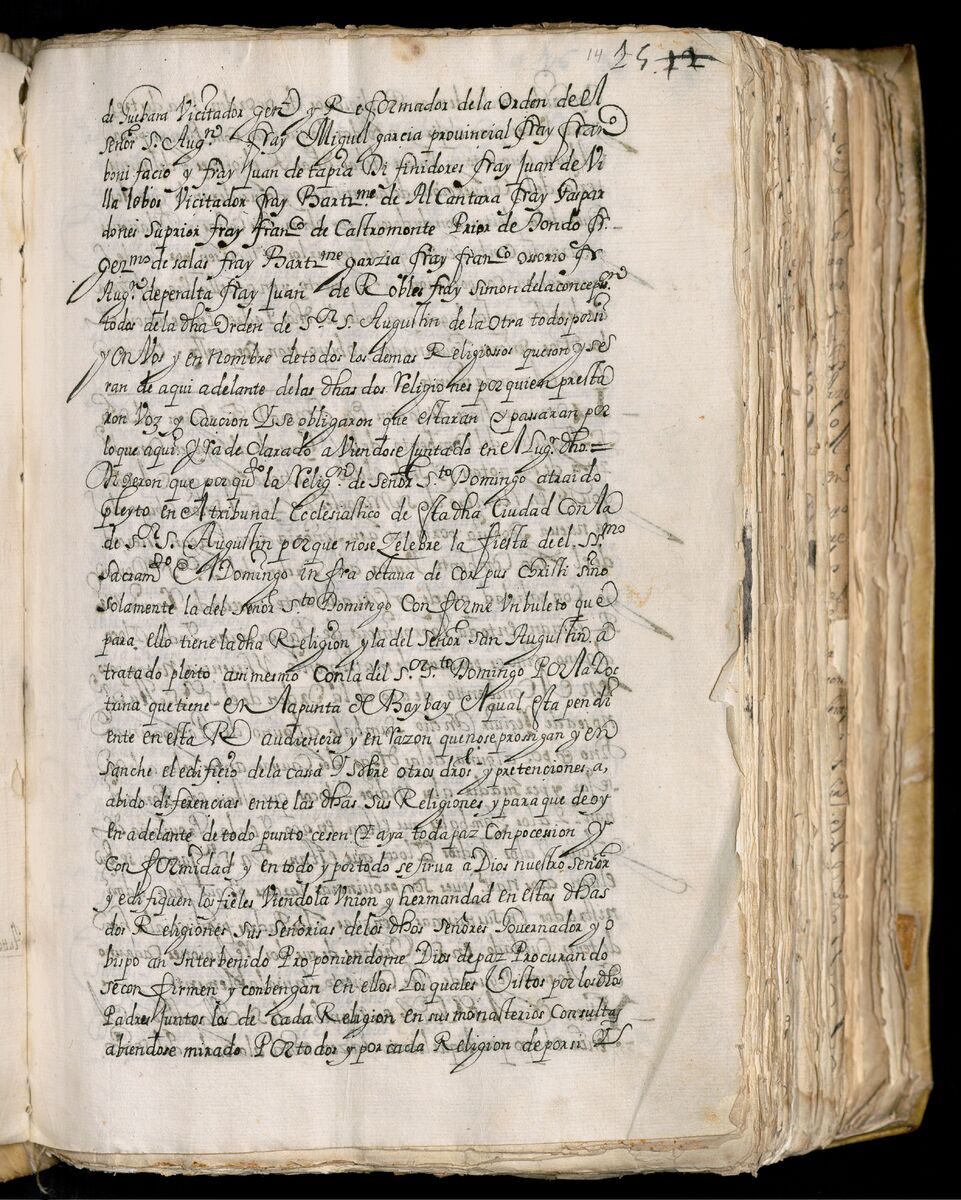 14 25 12
de Guebara Vicitador genl y Reformador de la Orden de el
señor S. Augn fray Miguel garcia provincial fray fran
bonifacio y fray Juan de tapia Difinidores fray Juan de Vi
lla lobos Vicitador fray Bartme de Alcantara fray Gaspar
dones Suprior fray franco de Castromonte Prior de Bondo fr.
germo de salas fray Bartme garzia fray franco ossorio fr
Augn de peralta fray Juan de Robles fray Simon de la concepn
todos de la dha Orden de Sor S. Augustin de la Otra todos por si
y en Vos y en nombre de todos los demas Religiosos que son y se
ran de aqui adelante de las dhas dos Religiones por quien presta
ron Voz y Caucion Y se obligaron que estaran y passaran por
lo que aqui Yra de Clarado a Viendose Juntado en el Lugr dho =
Dixeron que por quo la Relign de Señor Sto Domingo a traido
pleyto en el tribunal Ecclesiastico de Esta dha Ciudad Con la
de Sor S. Augustin por que no se Zelebre la fiesta de el Ssmo
Sacramto El Domingo infra octava de Corpus Christi sino
solamente la del señor Sto Domingo Conforme Un buleto que
para ello tiene la dha Religion y la del Señor san Augustin a
tratado pleito asi mesmo Con la del Sor Sto Domingo Por la Doc
trina que tiene En la punta de Baybay El qual esta pendi
ente en esta Rl audiencia y en razon que no se prosigan y en
sanche el edificio de la casa Y sobre otros dros y pretenciones a,
abido diferencias entre las dhas sus Religiones y para que de oy
en adelante de todo punto cesen Y aya toda paz Conpocesion Y
Conformidad y en todo y por todo se sirva a Dios nuestro Señor
y edifiquen los fieles Viendo la Union y hermandad en estas dhas
dos Religiones sus Señorias de los dhos Señores Governador y o
bispo an Interbenido Proponiendome Dios de paz Procurando
se confirmen y conbengan en ellos Los quales Vistos por los dhos
Padres Juntos los de Cada Religion en sus monasterios Consultas
abiendose mirado Por todos y por cada Religion de por si Y